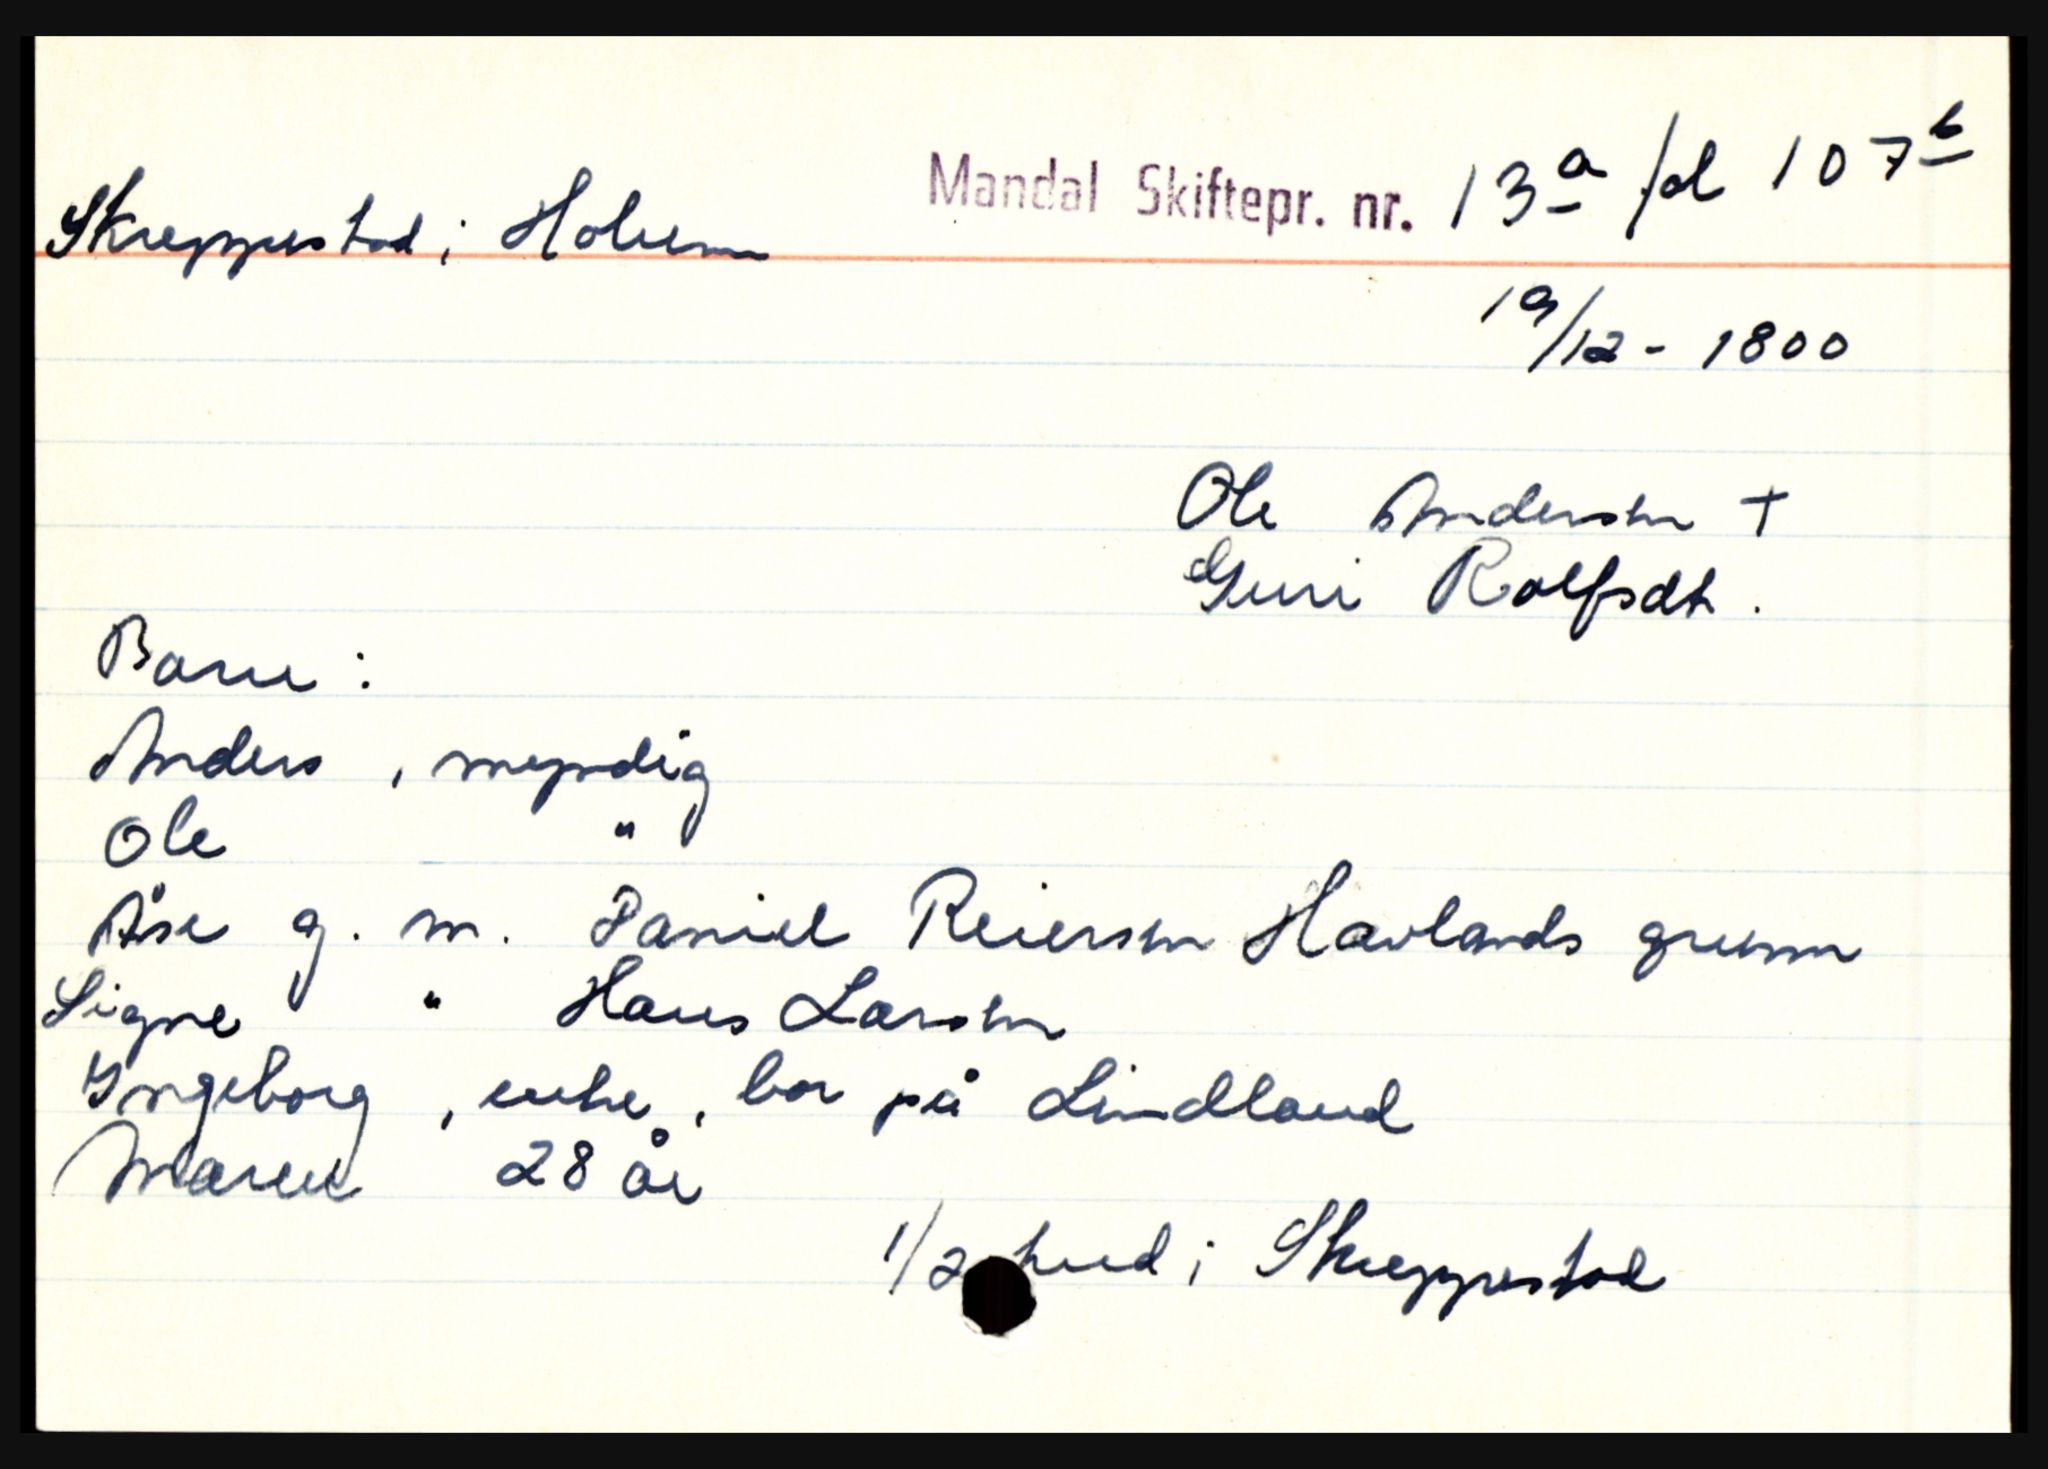 Mandal Skiftepr. nr. 13a fol 107b
Skreppestad i Holum
19/12 - 1800
Ole Andersen +
Guri Rolfsdt.
Barn :
Anders , myndig
Ole "
Åse g. m. Daniel Reiersen Havlands grunn
Signe " Hans Larsen
Ingeborg , enke , bor på Lindland
Maren 28 år
1/2 hud i Skreppestad